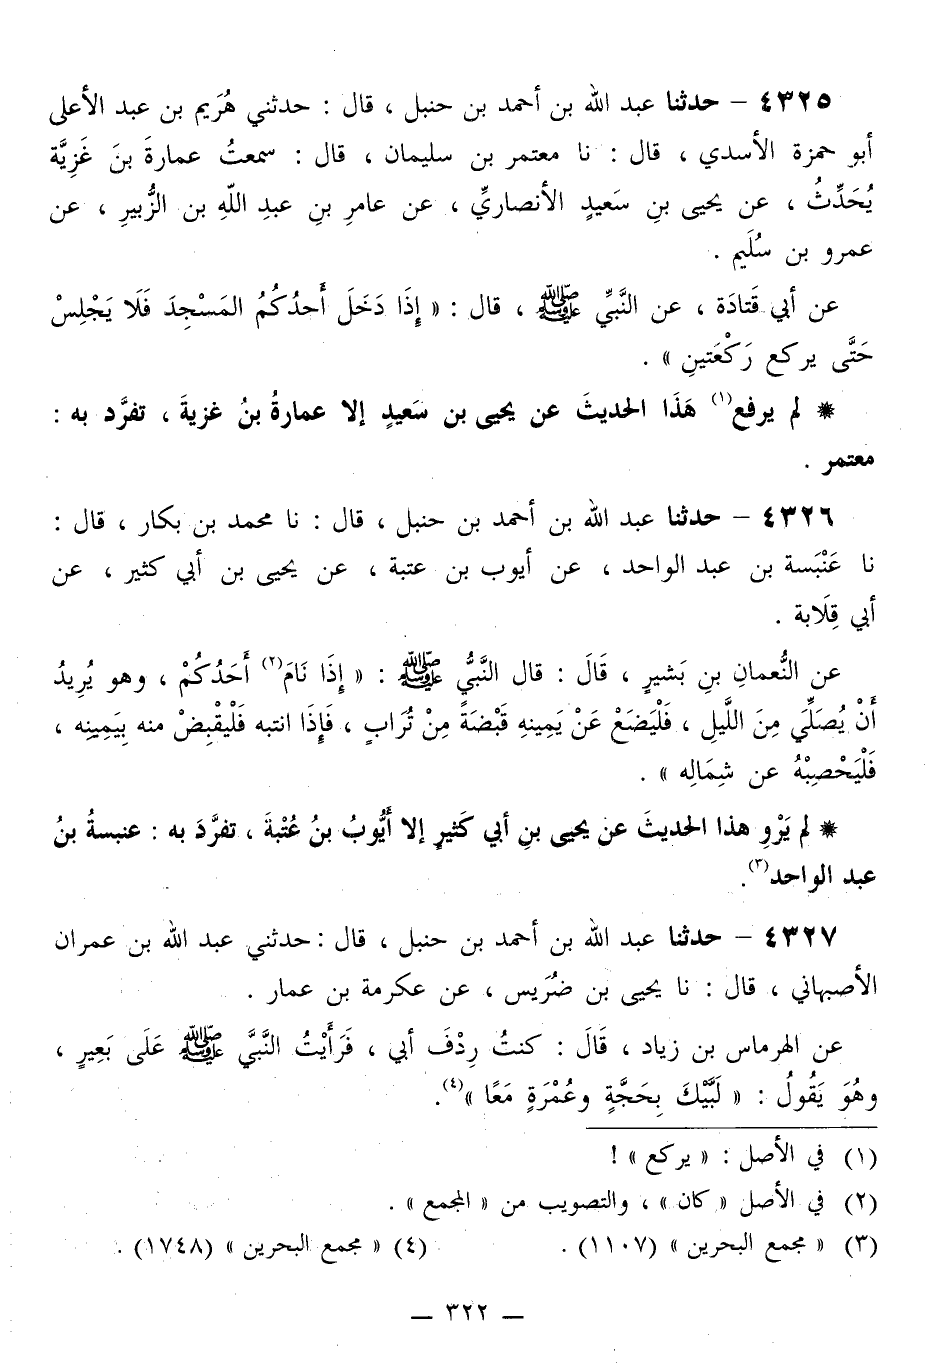 ٤٣٢٥ - حدثنا عبد الله بن أحمد بن حنبل ، قال : حدثني هُرَيم بن عبد الأعلى
أبو حمزة الأسدي ، قال : نا معتمر بن سليمان ، قال : سمعتُ عمارةَ بنَ غَزِيَّة
يُحَدِّثُ ، عن يحيى بنِ سَعيدٍ الأنصاريِّ ، عن عامرِ بنِ عبدِ اللّهِ بن الزُّبيرِ ، عن
عمرو بن سُلَيم .
عن أبي قَتادَة ، عن النَّبيِّ ﷺ ، قال : « إِذَا دَخَلَ أَحدُكُمُ المَسْجِدَ فَلَا يَجْلِسْ
حَتَّى يركع رَكْعَتينِ » .
* لم يرفع(١) هَذَا الحديثَ عن يحيى بن سَعيدٍ إلا عمارةُ بنُ غزيةَ ، تفرَّد به :
معتمر .
٤٣٢٦ - حدثنا عبد الله بن أحمد بن حنبل ، قال : نا محمد بن بكار ، قال :
نا عَنْبَسة بن عبد الواحد ، عن أيوب بن عتبة ، عن يحيى بن أبي كثير ، عن
أبي قِلَابة .
عن النُّعمانِ بنِ بَشيرٍ ، قَالَ : قال النَّبيُّ ﷺ : « إِذَا نَامَ(٢) أَحَدُكُمْ ، وهو يُرِيدُ
أَنْ يُصَلِّيَ مِنَ اللَّيلِ ، فَلْيَضَعْ عَنْ يَمِينهِ قَبْضَةً مِنْ تُرَابٍ ، فَإِذَا انتبه فَلْيَقْبِضْ منه بِيَمِينِه ،
فَلْيَحْصِبْهُ عن شِمَالِه » .
* لم يَرْوِ هذا الحديثَ عن يحيى بنِ أبي كَثيرٍ إلا أَيُّوبُ بنُ عُتْبةَ ، تفرَّدَ به : عنبسةُ بنُ
عبد الواحد(٣).
٤٣٢٧ - حدثنا عبد الله بن أحمد بن حنبل ، قال : حدثني عبد الله بن عمران
الأصبهاني ، قال : نا يحيى بن ضُرَيس ، عن عكرمة بن عمار .
عن الهرماس بن زياد ، قَالَ : كنتُ رِدْفَ أبي ، فَرَأَيْتُ النَّبيَّ ﷺ عَلَى بَعِيرٍ ،
وهُوَ يَقُولُ : « لَبَّيْكَ بِحَجَّةٍ وعُمْرَةٍ مَعًا »(٤).
(١) في الأصل : « يركع » !
(٢) في الأصل « كان » ، والتصويب من « المجمع » .
(٣) « مجمع البحرين » (١١٠٧) . (٤) « مجمع البحرين » (١٧٤٨) .
— ٣٢٢ —